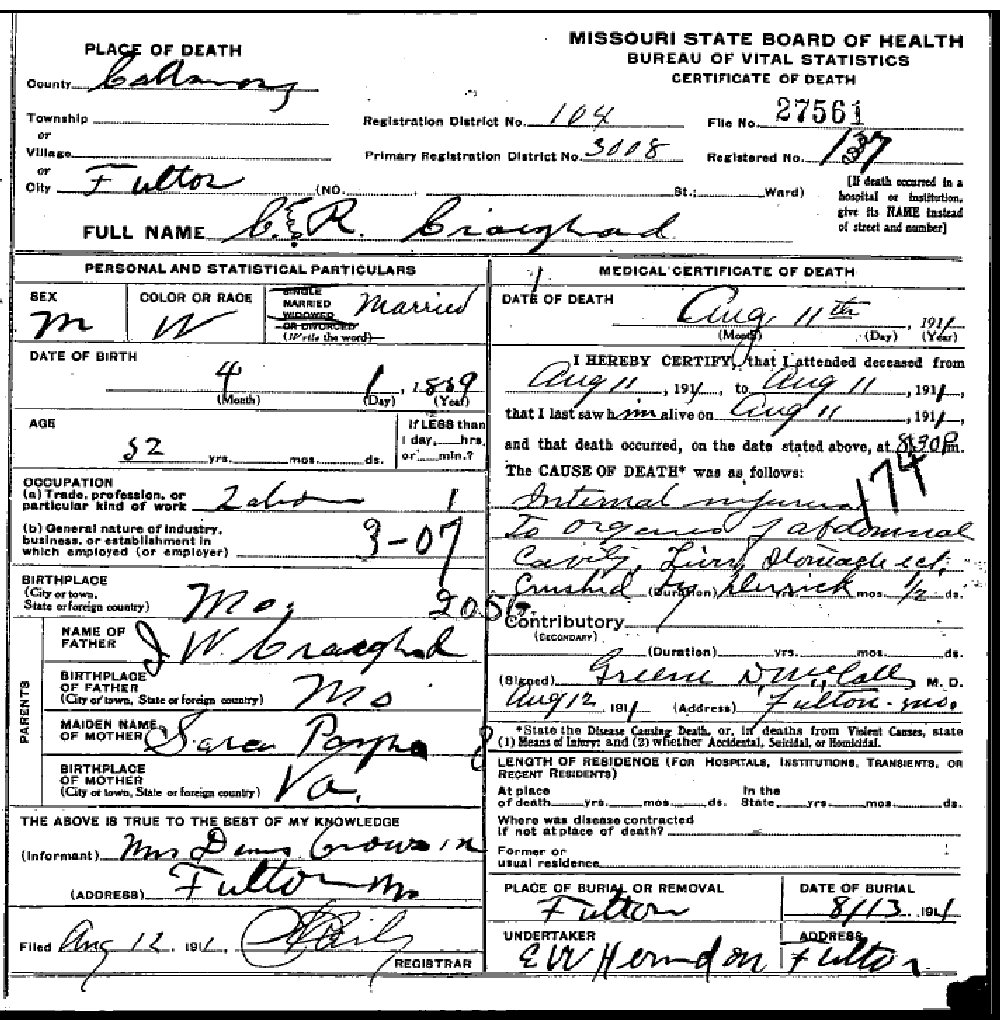 MISSOURI STATE BOARD OF HEALTH
BUREAU OF VITAL STATISTICS
CERTIFICATE OF DEATH
PLACE OF DEATH
County Callaway
Township
or
Village
or
City Fulton (NO. St.; Ward)
Registration District No. 104
Primary Registration District No. 3008
File No. 27561
Registered No. 137
[If death occurred in a
hospital or institution,
give its NAME instead
of street and number]
FULL NAME C. R. Craighead
PERSONAL AND STATISTICAL PARTICULARS
SEX
M
COLOR OR RACE
W
SINGLE
MARRIED
WIDOWED
OR DIVORCED
(Write the word)
Married
DATE OF BIRTH
4 1, 1859
(Month) (Day) (Year)
AGE
52 yrs. mos. ds.
If LESS than
1 day, hrs.
or min.?
OCCUPATION
(a) Trade, profession, or
particular kind of work Labor 1
(b) General nature of industry,
business, or establishment in
which employed (or employer) 3-07
BIRTHPLACE
(City or town,
State or foreign country) Mo. 2056
PARENTS
NAME OF
FATHER J W Craighead
BIRTHPLACE
OF FATHER
(City or town, State or foreign country) Mo
MAIDEN NAME
OF MOTHER Sara
BIRTHPLACE
OF MOTHER
(City or town, State or foreign country) Va.
THE ABOVE IS TRUE TO THE BEST OF MY KNOWLEDGE
(Informant) Mrs
(ADDRESS) Fulton Mo
Filed Aug 12, 1911,
REGISTRAR
MEDICAL CERTIFICATE OF DEATH
DATE OF DEATH
Aug 11th, 1911
(Month) (Day) (Year)
I HEREBY CERTIFY, that I attended deceased from
Aug 11, 1911, to Aug 11, 1911,
that I last saw him alive on Aug 11, 1911,
and that death occurred, on the date stated above, at 8:30 P m.
The CAUSE OF DEATH* was as follows:
174
Internal injuries
To organs of abdominal
Cavity, Liver, Stomach ect.
Crushed by derrick (Duration) yrs. mos. 1/2 ds.
Contributory
(SECONDARY)
(Duration) yrs. mos. ds.
(Signed) Greene D McCall, M. D.
Aug 12 1911 (Address) Fulton - mo.
*State the Disease Causing Death, or, in deaths from Violent Causes, state
(1) Means of Injury; and (2) whether Accidental, Suicidal, or Homicidal.
LENGTH OF RESIDENCE (FOR HOSPITALS, INSTITUTIONS, TRANSIENTS, OR
RECENT RESIDENTS)
At place
of death yrs. mos. ds.
In the
State yrs. mos. ds.
Where was disease contracted
if not at place of death?
Former or
usual residence
PLACE OF BURIAL OR REMOVAL
Fulton
DATE OF BURIAL
8/13 1911
UNDERTAKER
E W Herndon
ADDRESS
Fulton